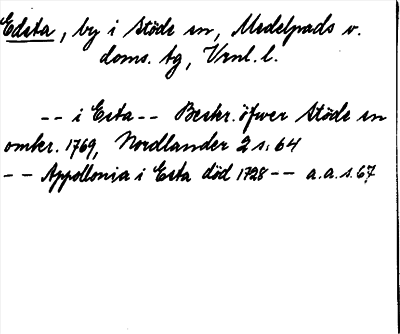 Edsta, by i Stöde sn, Medelpads v.
doms. tg, Vrnl. l.
-- i Esta -- Beskr. öfwer Stöde sn
omkr. 1769, Nordlander 2 s. 64
-- Appollonia i Esta död 1728 -- a.a.s. 67